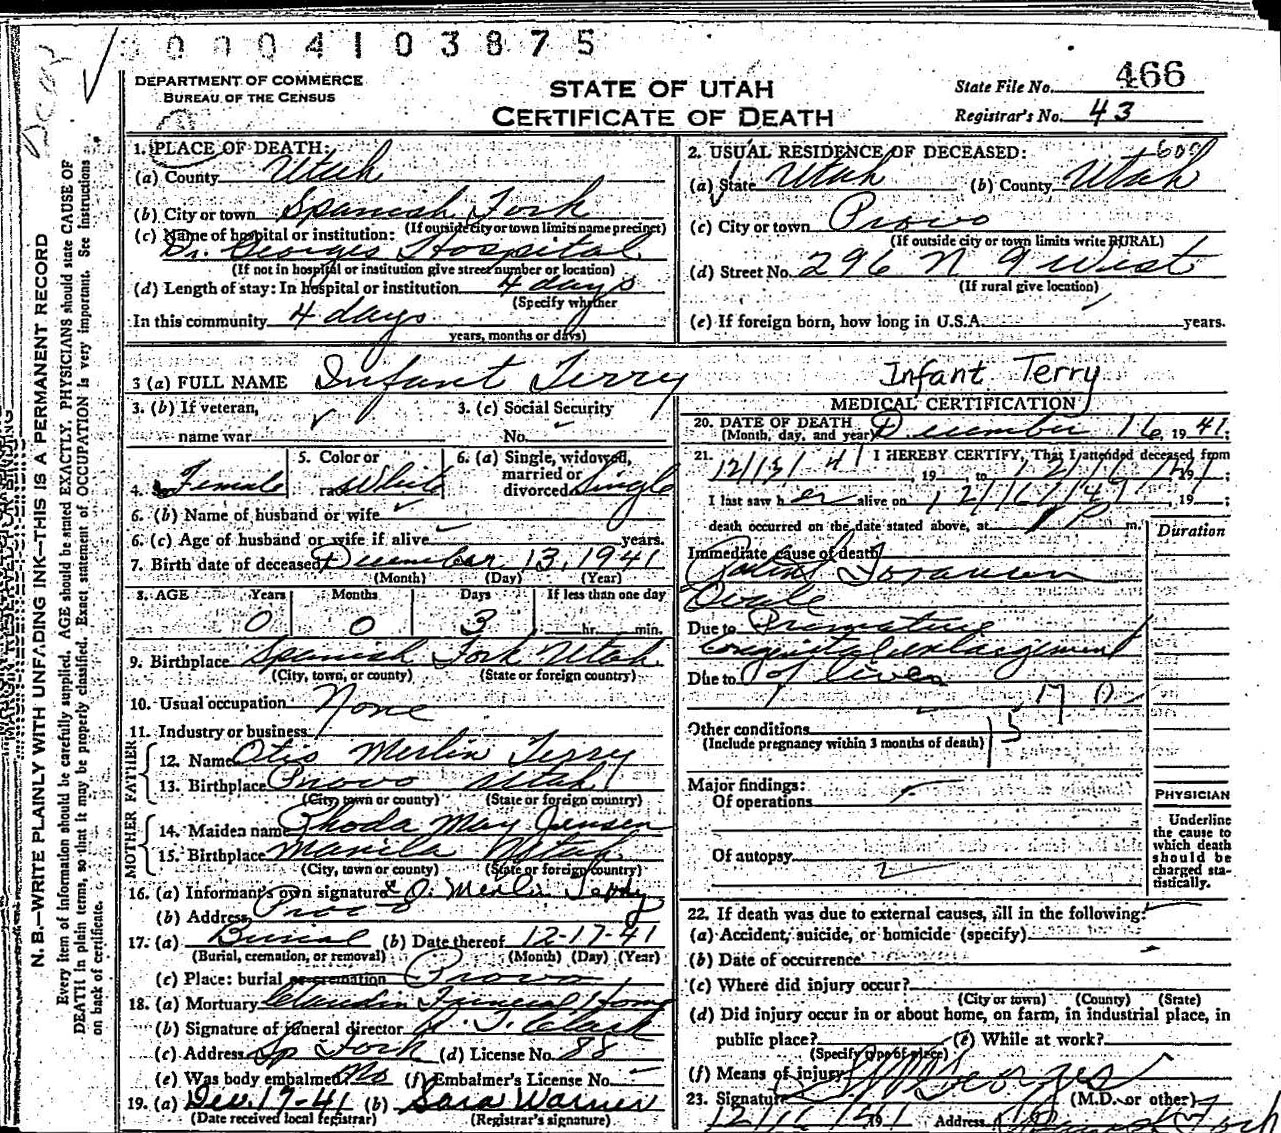 0004103875
Dec 17
DEPARTMENT OF COMMERCE
BUREAU OF THE CENSUS
STATE OF UTAH
CERTIFICATE OF DEATH
State File No. 466
Registrar's No. 43
N. B.—WRITE PLAINLY WITH UNFADING INK—THIS IS A PERMANENT RECORD
Every item of information should be carefully supplied. AGE should be stated EXACTLY. PHYSICIANS should state CAUSE OF
DEATH in plain terms, so that it may be properly classified. Exact statement of OCCUPATION is very important. See instructions
on back of certificate.
1. PLACE OF DEATH:
(a) County Utah
(b) City or town Spanish Fork
(If outside city or town limits name precinct)
(c) Name of hospital or institution:
Dr. Georges Hospital
(If not in hospital or institution give street number or location)
(d) Length of stay: In hospital or institution 4 days
(Specify whether
In this community 4 days
years, months or days)
2. USUAL RESIDENCE OF DECEASED: 600
(a) State Utah (b) County Utah
(c) City or town Provo
(If outside city or town limits write RURAL)
(d) Street No. 296 N 9 West
(If rural give location)
(e) If foreign born, how long in U.S.A. years.
3 (a) FULL NAME Infant Terry Infant Terry
3. (b) If veteran,
name war
3. (c) Social Security
No.
4. Female
5. Color or
race White
6. (a) Single, widowed,
married or
divorced Single
6. (b) Name of husband or wife
6. (c) Age of husband or wife if alive years.
7. Birth date of deceased December 13, 1941
(Month) (Day) (Year)
8. AGE Years Months Days If less than one day
0 0 3 hr. min.
9. Birthplace Spanish Fork Utah
(City, town, or county) (State or foreign country)
10. Usual occupation None
11. Industry or business
FATHER
12. Name Otis Merlin Terry
13. Birthplace Provo Utah
(City, town or county) (State or foreign country)
MOTHER
14. Maiden name Rhoda May Jensen
15. Birthplace Manila Utah
(City, town or county) (State or foreign country)
16. (a) Informant's own signature O. Merlin Terry
(b) Address Provo
17. (a) Burial (b) Date thereof 12-17-41
(Burial, cremation, or removal) (Month) (Day) (Year)
(c) Place: burial or cremation Provo
18. (a) Mortuary Claudin Funeral Home
(b) Signature of funeral director A. T. Clark
(c) Address Sp Fork (d) License No. 88
(e) Was body embalmed? No (f) Embalmer's License No.
19. (a) Dec. 17-41 (b) Sara Warner
(Date received local registrar) (Registrar's signature)
MEDICAL CERTIFICATION
20. DATE OF DEATH
(Month, day, and year) December 16, 1941;
21. I HEREBY CERTIFY, That I attended deceased from
12/13/41, 19 , to 12/16/41, 19 ;
I last saw her alive on 12/16/41, 19 ;
death occurred on the date stated above, at 1 P m.
Duration
Immediate cause of death
Patent Foramen
Ovale
Due to Premature
congenital enlargement
Due to of liver
Other conditions
(Include pregnancy within 3 months of death)
Major findings:
Of operations
Of autopsy
PHYSICIAN
Underline
the cause to
which death
should be
charged sta-
tistically.
22. If death was due to external causes, fill in the following:
(a) Accident, suicide, or homicide (specify)
(b) Date of occurrence
(c) Where did injury occur?
(City or town) (County) (State)
(d) Did injury occur in or about home, on farm, in industrial place, in
public place? (e) While at work?
(Specify type of place)
(f) Means of injury
23. Signature Georges (M.D. or other)
Address Spanish Fork